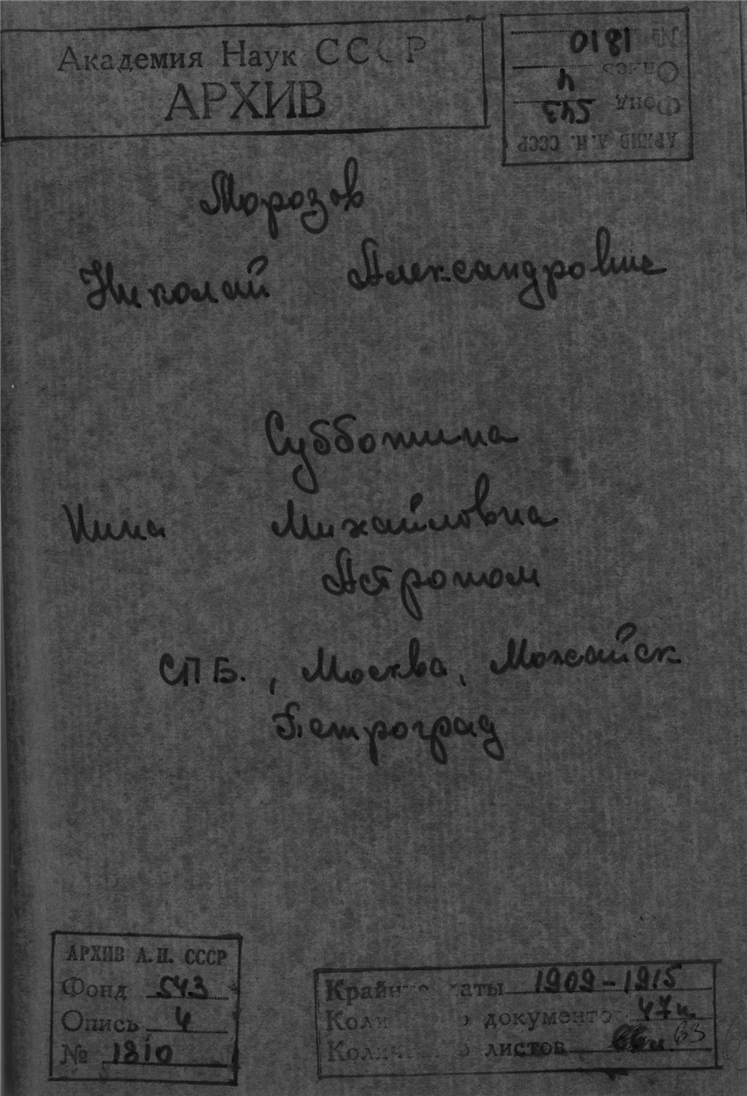 Академия Наук СССР
АРХИВ
АРХИВ А.Н. СССР
Фонд 543
Опись 4
№ 1810
Морозов
Николай Александрович
Субботина
Нина Михайловна
Астроном
СПБ., Москва, Можайск
Петроград
АРХИВ А.Н. СССР
Фонд 543
Опись 4
№ 1810
даты 1909-1915
документов 47
листов 63